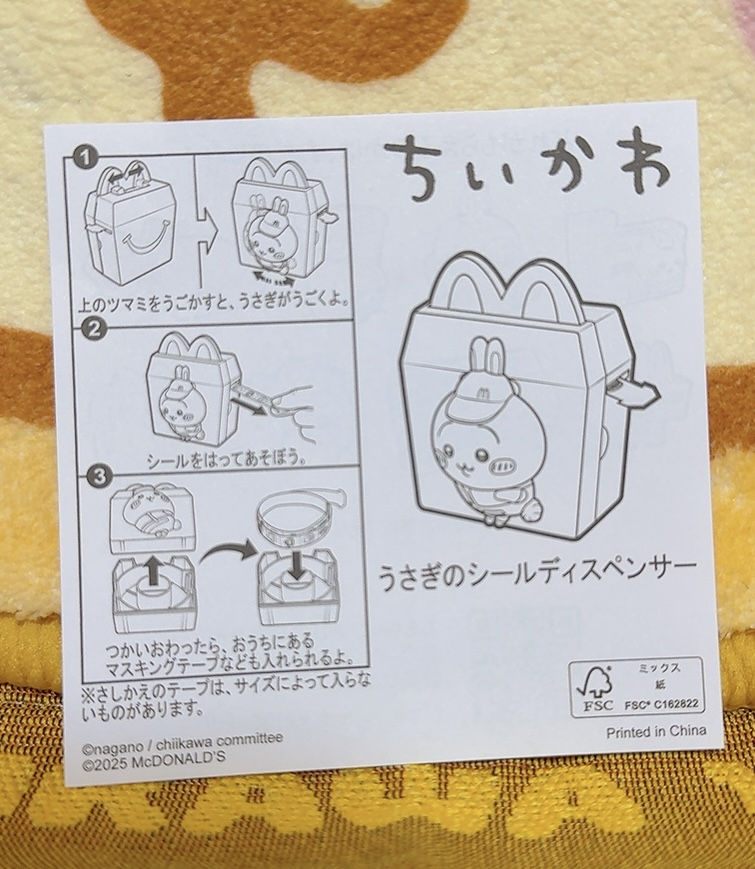 ちいかわ
1
上のツマミをうごかすと、うさぎがうごくよ。
2
シールをはってあそぼう。
3
つかいおわったら、おうちにある
マスキングテープなども入れられるよ。
※さしかえのテープは、サイズによって入らな
いものがあります。
©nagano / chiikawa committee
©2025 McDONALD'S
うさぎのシールディスペンサー
FSC
ミックス
紙
FSC® C162822
Printed in China